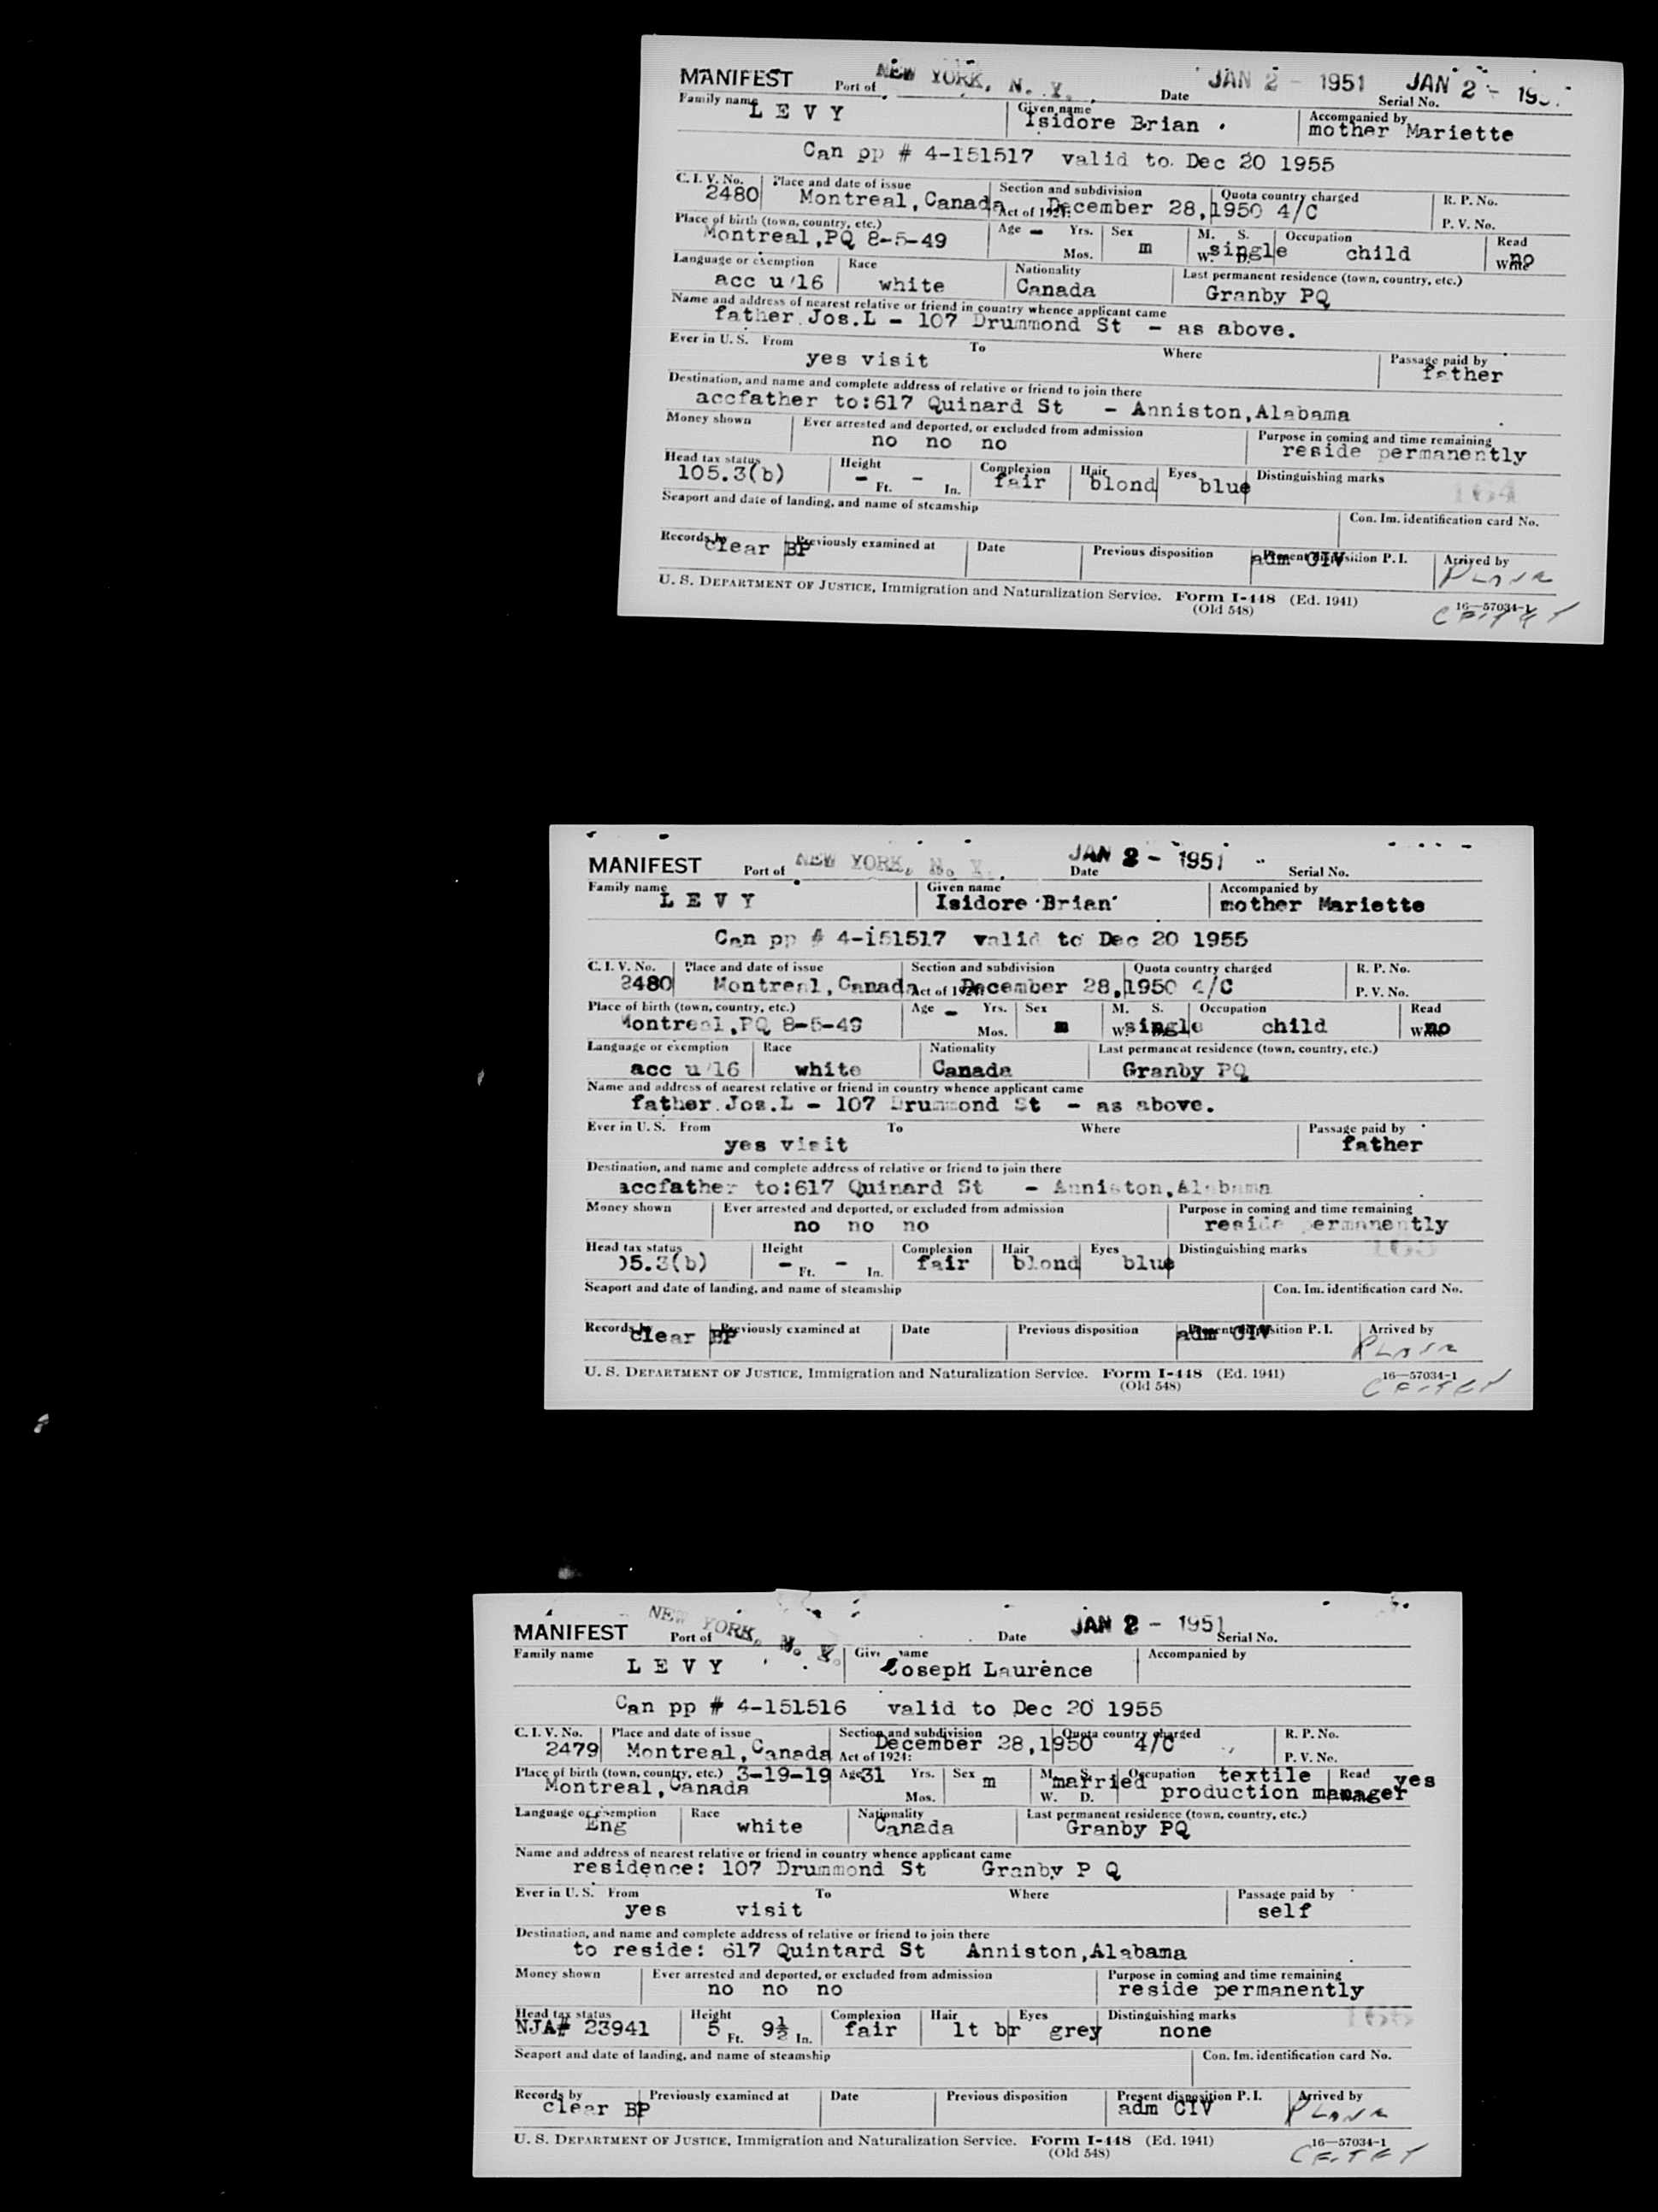 MANIFEST Port of NEW YORK, N. Y. Date JAN 2 - 1951 Serial No. JAN 2 -
Family name LEVY Given name Isidore Brian Accompanied by mother Mariette
Can pp # 4-151517 valid to Dec 20 1955
C. I. V. No. 2480 Place and date of issue Montreal, Canada Section and subdivision Act of 1924: December 28, 1950 Quota country charged 4/C R. P. No. P. V. No.
Place of birth (town, country, etc.) Montreal, PQ 8-5-49 Age - Yrs. Mos. Sex m M. S. W. D. single Occupation child Read Write no
Language or exemption acc u/16 Race white Nationality Canada Last permanent residence (town, country, etc.) Granby PQ
Name and address of nearest relative or friend in country whence applicant came
father Jos.L - 107 Drummond St - as above.
Ever in U. S. From yes visit To Where Passage paid by father
Destination, and name and complete address of relative or friend to join there
accfather to:617 Quinard St - Anniston, Alabama
Money shown Ever arrested and deported, or excluded from admission no no no Purpose in coming and time remaining reside permanently
Head tax status 105.3(b) Height - Ft. - In. Complexion fair Hair blond Eyes blue Distinguishing marks 164
Seaport and date of landing, and name of steamship Con. Im. identification card No.
Records by clear BP Previously examined at Date Previous disposition Present disposition P. I. adm CIV Arrived by
U. S. DEPARTMENT OF JUSTICE, Immigration and Naturalization Service. Form I-448 (Ed. 1941) 16—57034-1
(Old 548)
MANIFEST Port of NEW YORK, N. Y. Date JAN 2 - 1951 Serial No.
Family name LEVY Given name Isidore Brian Accompanied by mother Mariette
Can pp # 4-151517 valid to Dec 20 1955
C. I. V. No. 2480 Place and date of issue Montreal, Canada Section and subdivision Act of 1924: December 28, 1950 Quota country charged 4/C R. P. No. P. V. No.
Place of birth (town, country, etc.) Montreal, PQ 8-5-49 Age - Yrs. Mos. Sex m M. S. W. D. single Occupation child Read Write no
Language or exemption acc u/16 Race white Nationality Canada Last permanent residence (town, country, etc.) Granby PQ
Name and address of nearest relative or friend in country whence applicant came
father Jos.L - 107 Drummond St - as above.
Ever in U. S. From yes visit To Where Passage paid by father
Destination, and name and complete address of relative or friend to join there
accfather to:617 Quinard St - Anniston, Alabama
Money shown Ever arrested and deported, or excluded from admission no no no Purpose in coming and time remaining reside permanently
Head tax status 05.3(b) Height - Ft. - In. Complexion fair Hair blond Eyes blue Distinguishing marks
Seaport and date of landing, and name of steamship Con. Im. identification card No.
Records by clear BP Previously examined at Date Previous disposition Present disposition P. I. adm CIV Arrived by
U. S. DEPARTMENT OF JUSTICE, Immigration and Naturalization Service. Form I-448 (Ed. 1941) 16—57034-1
(Old 548)
MANIFEST Port of NEW YORK, N. Y. Date JAN 2 - 1951 Serial No.
Family name LEVY Given name Joseph Laurence Accompanied by
Can pp # 4-151516 valid to Dec 20 1955
C. I. V. No. 2479 Place and date of issue Montreal, Canada Section and subdivision Act of 1924: December 28, 1950 Quota country charged 4/C R. P. No. P. V. No.
Place of birth (town, country, etc.) 3-19-19 Montreal, Canada Age 31 Yrs. Mos. Sex m M. S. W. D. married Occupation textile production manager Read yes
Language or exemption Eng Race white Nationality Canada Last permanent residence (town, country, etc.) Granby PQ
Name and address of nearest relative or friend in country whence applicant came
residence: 107 Drummond St Granby P Q
Ever in U. S. From yes visit To Where Passage paid by self
Destination, and name and complete address of relative or friend to join there
to reside: 617 Quintard St Anniston, Alabama
Money shown Ever arrested and deported, or excluded from admission no no no Purpose in coming and time remaining reside permanently
Head tax status NJA# 23941 Height 5 Ft. 9½ In. Complexion fair Hair lt br Eyes grey Distinguishing marks none
Seaport and date of landing, and name of steamship Con. Im. identification card No.
Records by clear BP Previously examined at Date Previous disposition Present disposition P. I. adm CIV Arrived by
U. S. DEPARTMENT OF JUSTICE, Immigration and Naturalization Service. Form I-448 (Ed. 1941) 16—57034-1
(Old 548)